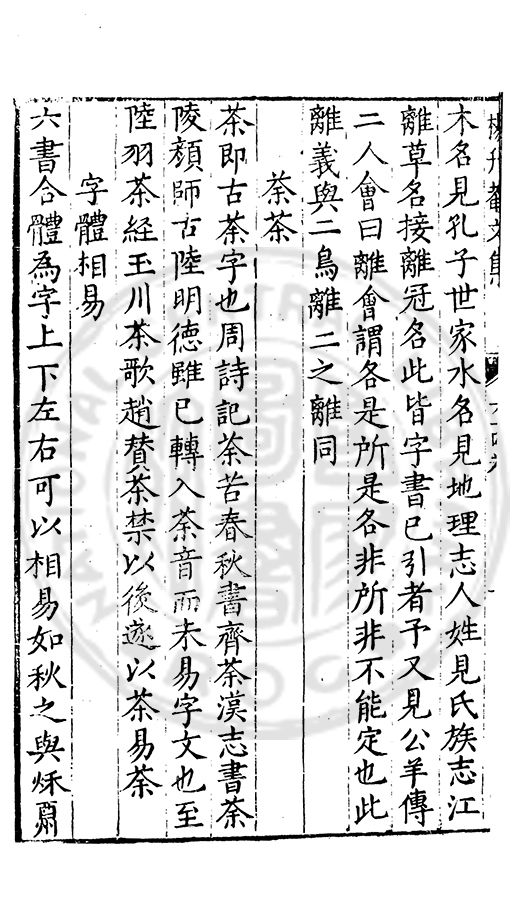 木名見孔子世家水名見地理志人姓見氏族志江
離草名接離冠名此皆字書已引者予又見公羊傳
二人會曰離會謂各是所是各非所非不能定也此
離義與二鳥離二之離同
荼茶
茶即古荼字也周詩記荼苦春秋書齊荼漢志書荼
陵顏師古陸明德雖已轉入茶音而未易字文也至
陸羽茶経玉川茶歌趙賛茶禁以後遂以茶易荼
字體相易
六書合體為字上下左右可以相易如秋之與秌鬲